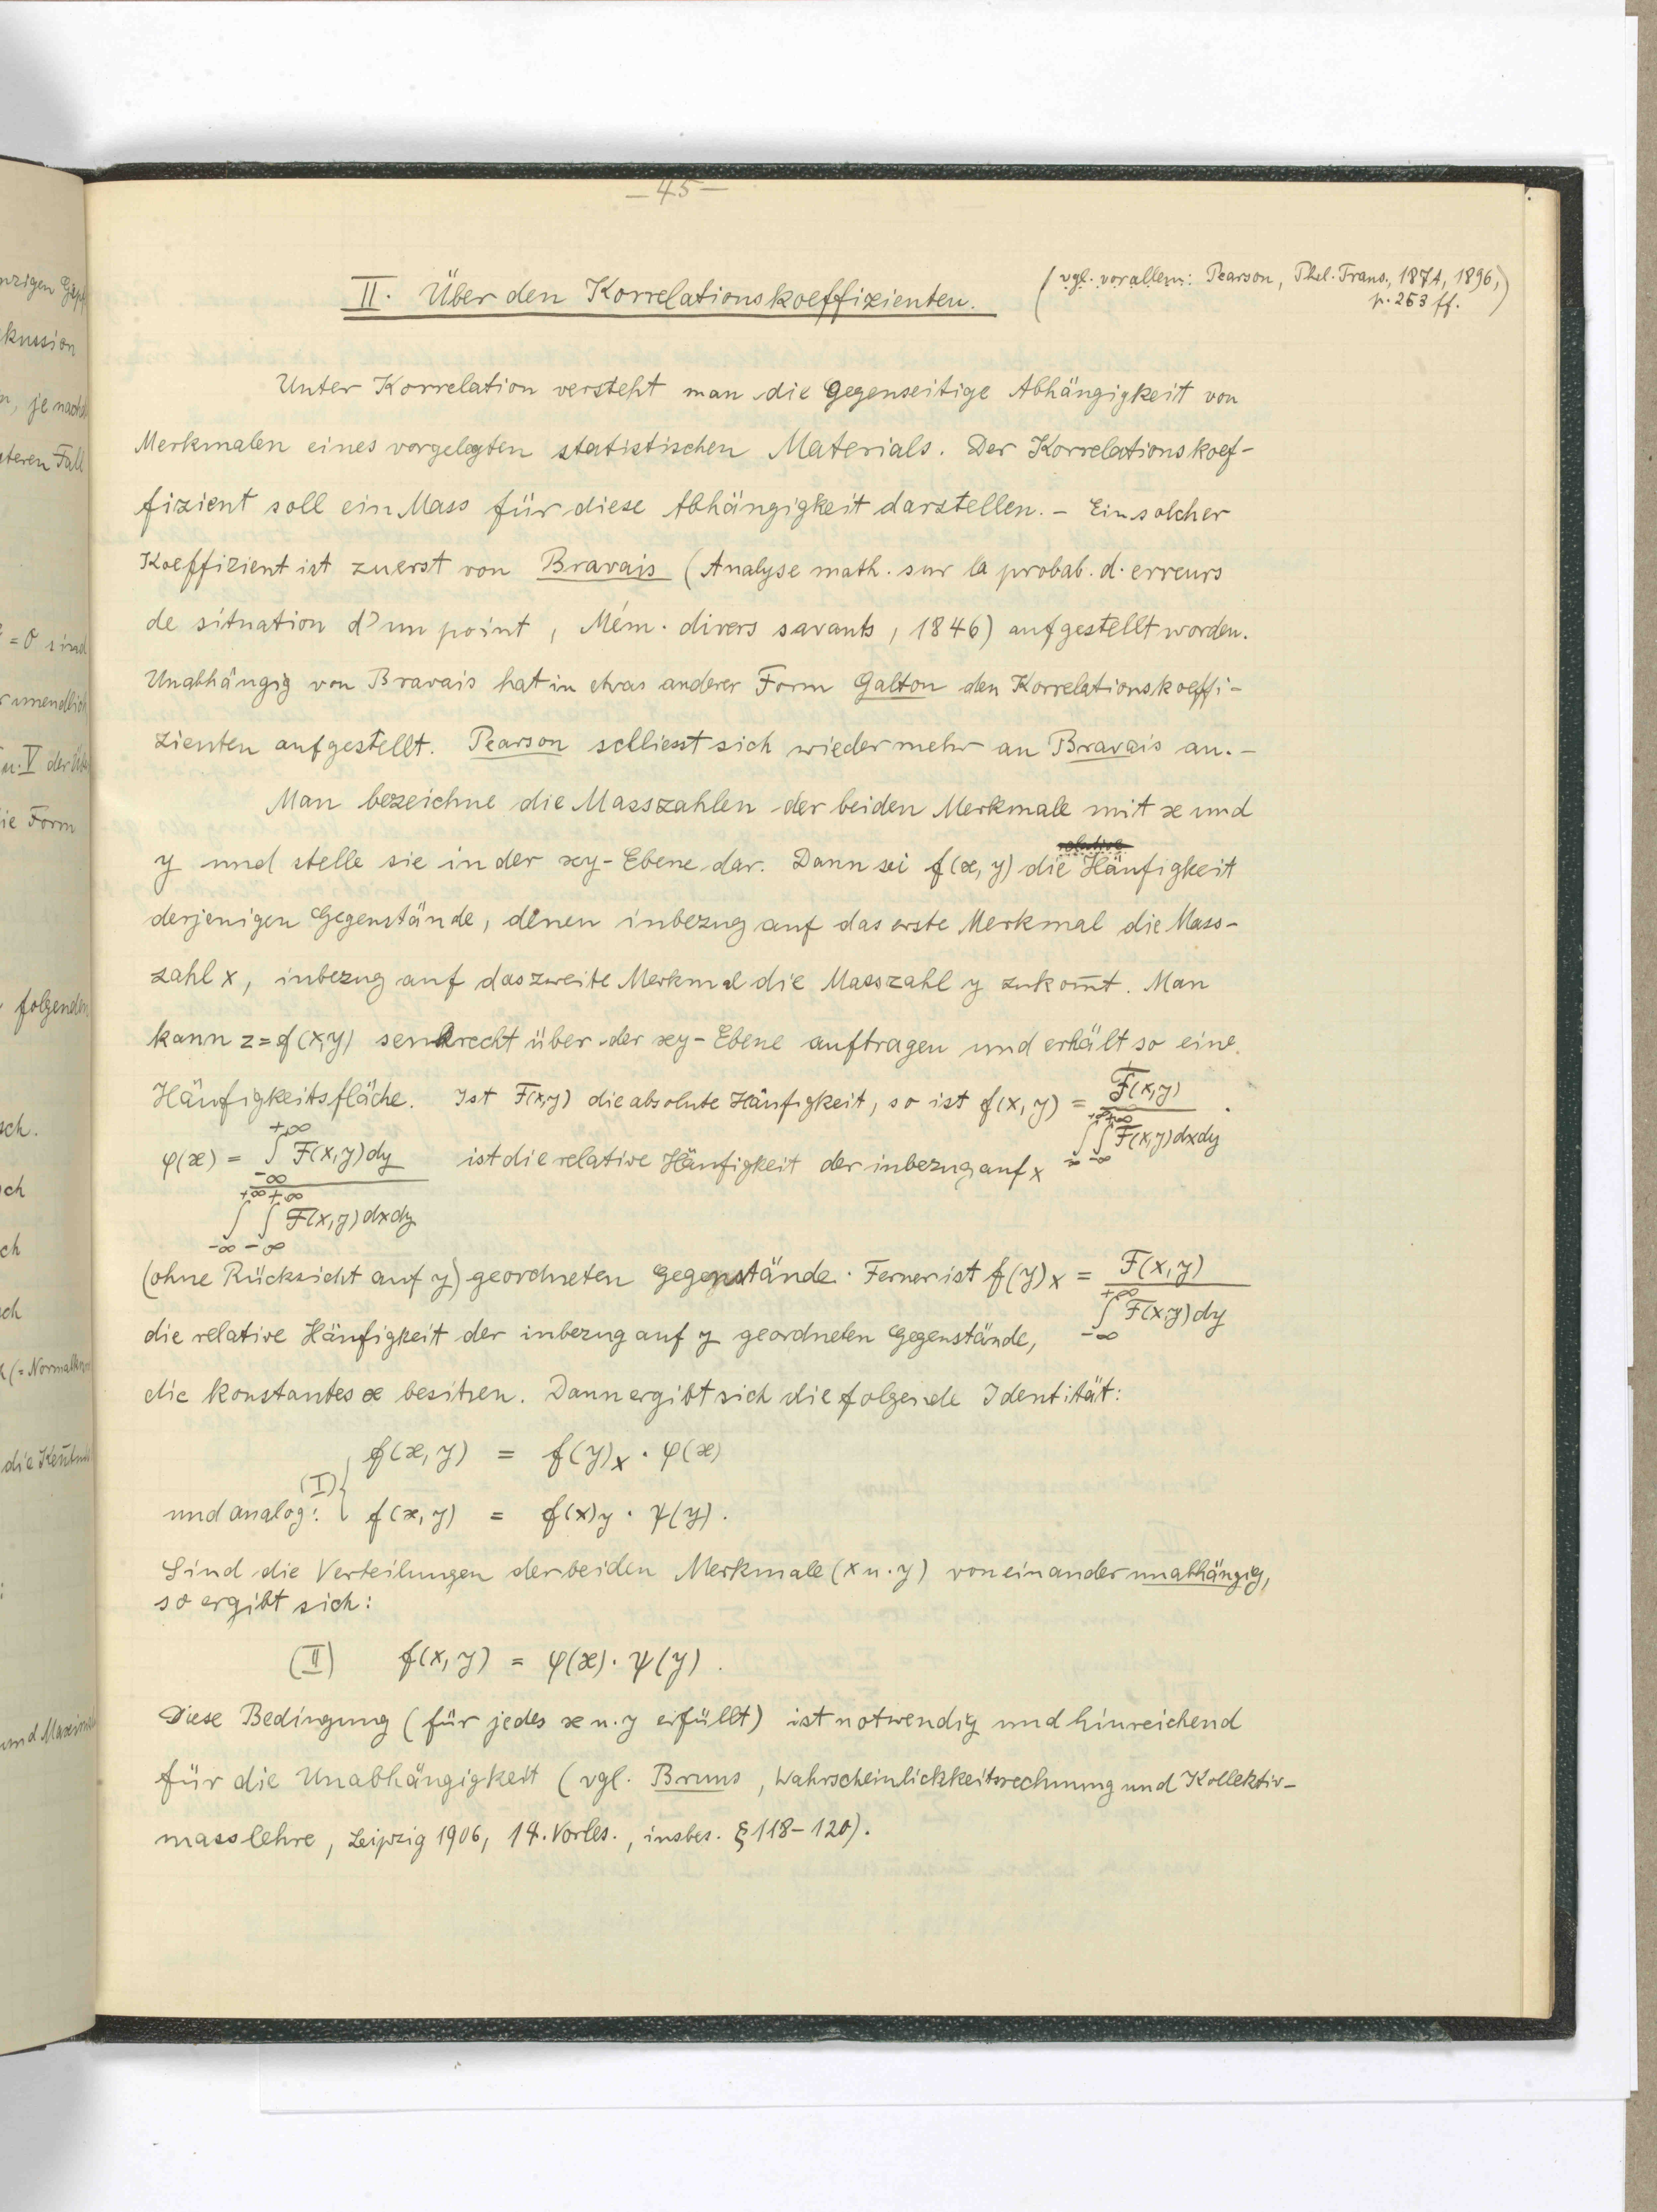 —45—
II. Über den Korrelationskoeffizienten.
(vgl. vor allem: Pearson, Phil. Trans., 187A, 1896,
p. 253 ff.)
Unter Korrelation versteht man die gegenseitige Abhängigkeit von
Merkmalen eines vorgelegten statistischen Materials. Der Korrelationskoef-
fizient soll ein Mass für diese Abhängigkeit darstellen. – Ein solcher
Koeffizient ist zuerst von Bravais (Analyse math. sur la probab. d. erreurs
de situation d'un point, Mém. divers savants, 1846) aufgestellt worden.
Unabhängig von Bravais hat in etwas anderer Form Galton den Korrelationskoeffi-
zienten aufgestellt. Pearson schliesst sich wieder mehr an Bravais an. –
Man bezeichne die Masszahlen der beiden Merkmale mit x und
relative
y und stelle sie in der xy-Ebene dar. Dann sei f(x, y) die Häufigkeit
derjenigen Gegenstände, denen inbezug auf das erste Merkmal die Mass-
zahl x, inbezug auf das zweite Merkmal die Masszahl y zukom̄t. Man
kann z = f(x,y) senkrecht über der xy-Ebene auftragen und erhält so eine
Häufigkeitsfläche. Ist F(x,y) die absolute Häufigkeit, so ist f(x, y) = F(x,y) / ∫_{-∞}^{+∞} ∫_{-∞}^{+∞} F(x,y) dx dy .
φ(x) = ∫_{-∞}^{+∞} F(x,y) dy / ∫_{-∞}^{+∞} ∫_{-∞}^{+∞} F(x,y) dx dy ist die relative Häufigkeit der inbezug auf x
(ohne Rücksicht auf y) geordneten Gegenstände. Ferner ist f(y)x = F(x,y) / ∫_{-∞}^{+∞} F(x,y) dy
die relative Häufigkeit der inbezug auf y geordneten Gegenstände,
die konstantes x besitzen. Dann ergibt sich die folgende Identität:
f(x, y) = f(y)x · φ(x)
(I)
und analog: f(x, y) = f(x)y · ψ(y).
Sind die Verteilungen der beiden Merkmale (x u. y) voneinander unabhängig,
so ergibt sich:
(II) f(x, y) = φ(x) · ψ(y).
Diese Bedingung (für jedes x u. y erfüllt) ist notwendig und hinreichend
für die Unabhängigkeit (vgl. Bruns, Wahrscheinlichkeitsrechnung und Kollektiv-
masslehre, Leipzig 1906, 14. Vorles., insbes. § 118–120).
kussion
n, je nach
teren Fall
= 0 sind
unendlich
u. V der
ie Form
folgenden
sch.
ch
ch
ch
(= Normal
die Ken̄tn
und Maxim